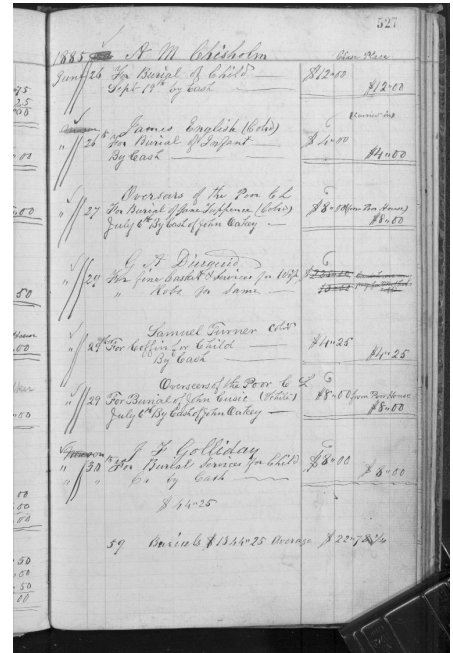 527
1885 A M Chisholm
June 26 For Burial of Child $12"00 Chase Place
Sept 19th by Cash $12"00
James English (Cold)
" 26 For Burial of Infant $4"00
By Cash $4"00
Overseers of the Poor C L
" 27 For Burial of Jane (Cold) $8"00 from Poor House
July 6th By Cash of John Oakey $8"00
G A
" 29 For fine Casket & Services for Wife
" Robe for Same
Samuel Turner cold
" 29th For Coffin for Child $4"25
By Cash $4"25
Overseers of the Poor C L
" 29 For Burial of John Cusic (White) $8"00 from Poor House
July 6th By Cash of John Oakey $8"00
J F Golliday
" 30th For Burial Services for Child $8"00
" " Cr by Cash $8"00
$44"25
59 Burials $1344"25 Average